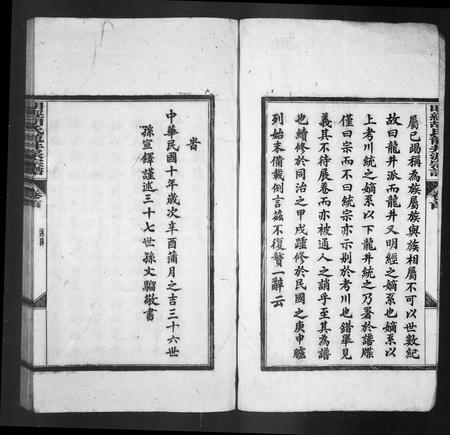 屬已竭稱為族屬族與族相屬不可以世數紀
故曰龍井派而龍井又明經之嫡系也嫡系以
上考川統之嫡系以下龍井統之乃署於譜牒
僅曰宗而不曰統宗亦示别於考川也錯舉見
義其不待展卷而亦被通人之誚乎至其為譜
也續修於同治之甲戌踵修於民國之庚申臚
列始末備載例言茲不復贅一辭云
明經胡氏龍井派宗譜
卷首
旹
中華民國十年歲次辛酉蒲月之吉三十六世
孫宣鐸謹述三十七世孫文騶敬書
明經胡氏龍井派宗譜
卷首